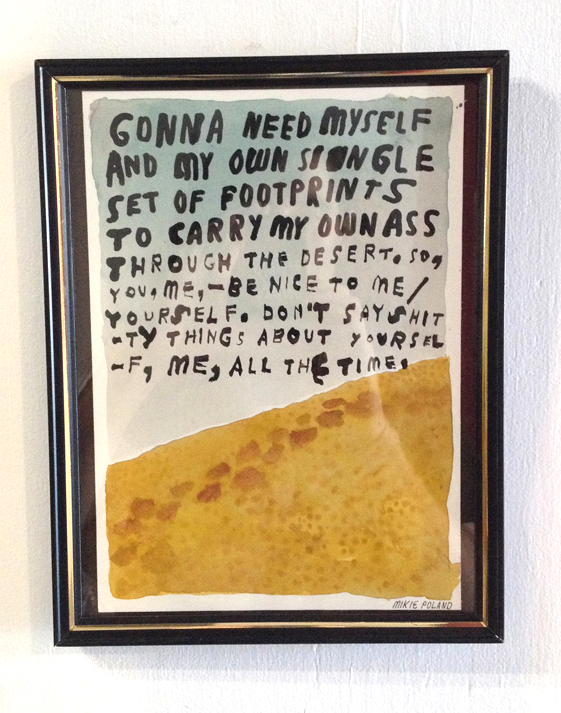 GONNA NEED MYSELF
AND MY OWN SINGLE
SET OF FOOTPRINTS
TO CARRY MY OWN ASS
THROUGH THE DESERT. SO,
YOU, ME,—BE NICE TO ME/
YOURSELF. DON'T SAY SHIT
-TY THINGS ABOUT YOURSEL
-F, ME, ALL THE TIME,
MIKIE POLAND